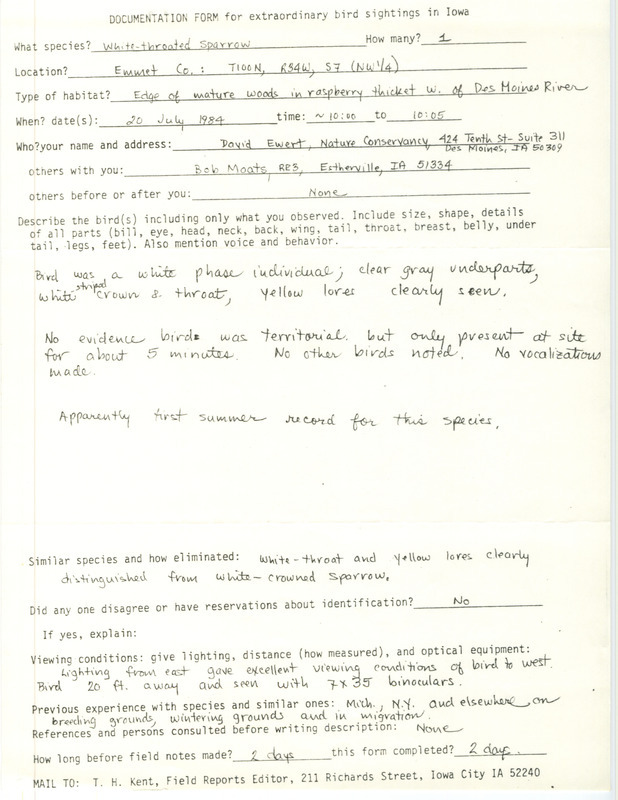 DOCUMENTATION FORM for extraordinary bird sightings in Iowa
What species? White-throated Sparrow How many? 1
Location? Emmet Co.: T100N, R34W, S7 (NW 1/4)
Type of habitat? Edge of mature woods in raspberry thicket W. of Des Moines River
When? date(s): 20 July 1984 time: ~10:00 to 10:05
Who?your name and address: David Ewert, Nature Conservancy, 424 Tenth St- Suite 311
Des Moines, IA 50309
others with you: Bob Moats, RR3, Estherville, IA 51334
others before or after you: None
Describe the bird(s) including only what you observed. Include size, shape, details
of all parts (bill, eye, head, neck, back, wing, tail, throat, breast, belly, under
tail, legs, feet). Also mention voice and behavior.
Bird was a white phase individual; clear gray underparts,
white striped crown & throat, yellow lores clearly seen.
No evidence bird was territorial, but only present at site
for about 5 minutes. No other birds noted. No vocalizations
made.
Apparently first summer record for this species.
Similar species and how eliminated: White-throat and yellow lores clearly
distinguished from white-crowned sparrow.
Did any one disagree or have reservations about identification? No
If yes, explain:
Viewing conditions: give lighting, distance (how measured), and optical equipment:
Lighting from east gave excellent viewing conditions of bird to west.
Bird 20 ft. away and seen with 7x35 binoculars.
Previous experience with species and similar ones: Mich., N.Y. and elsewhere on
breeding grounds, wintering grounds and in migration.
References and persons consulted before writing description: None
How long before field notes made? 2 days this form completed? 2 days.
MAIL TO: T. H. Kent, Field Reports Editor, 211 Richards Street, Iowa City IA 52240